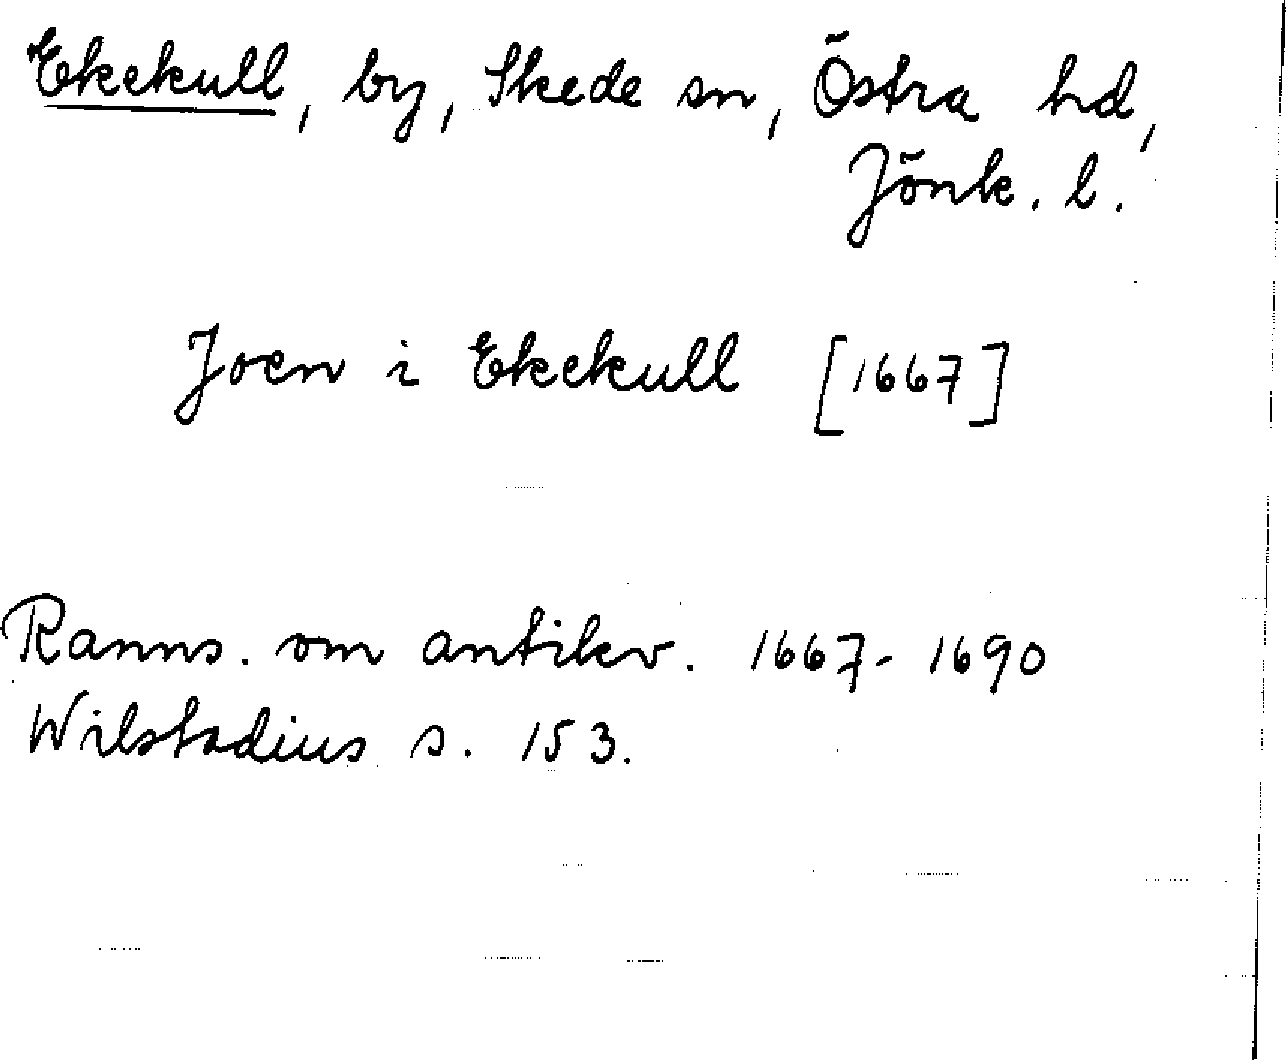 Ekekull, by, Skede sn, Östra hd,
Jönk. l.
Joen i Ekekull [1667]
Ranns. om antikv. 1667-1690
Wilstadius s. 153.